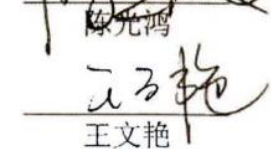 陈光鸿
王文艳
王文艳